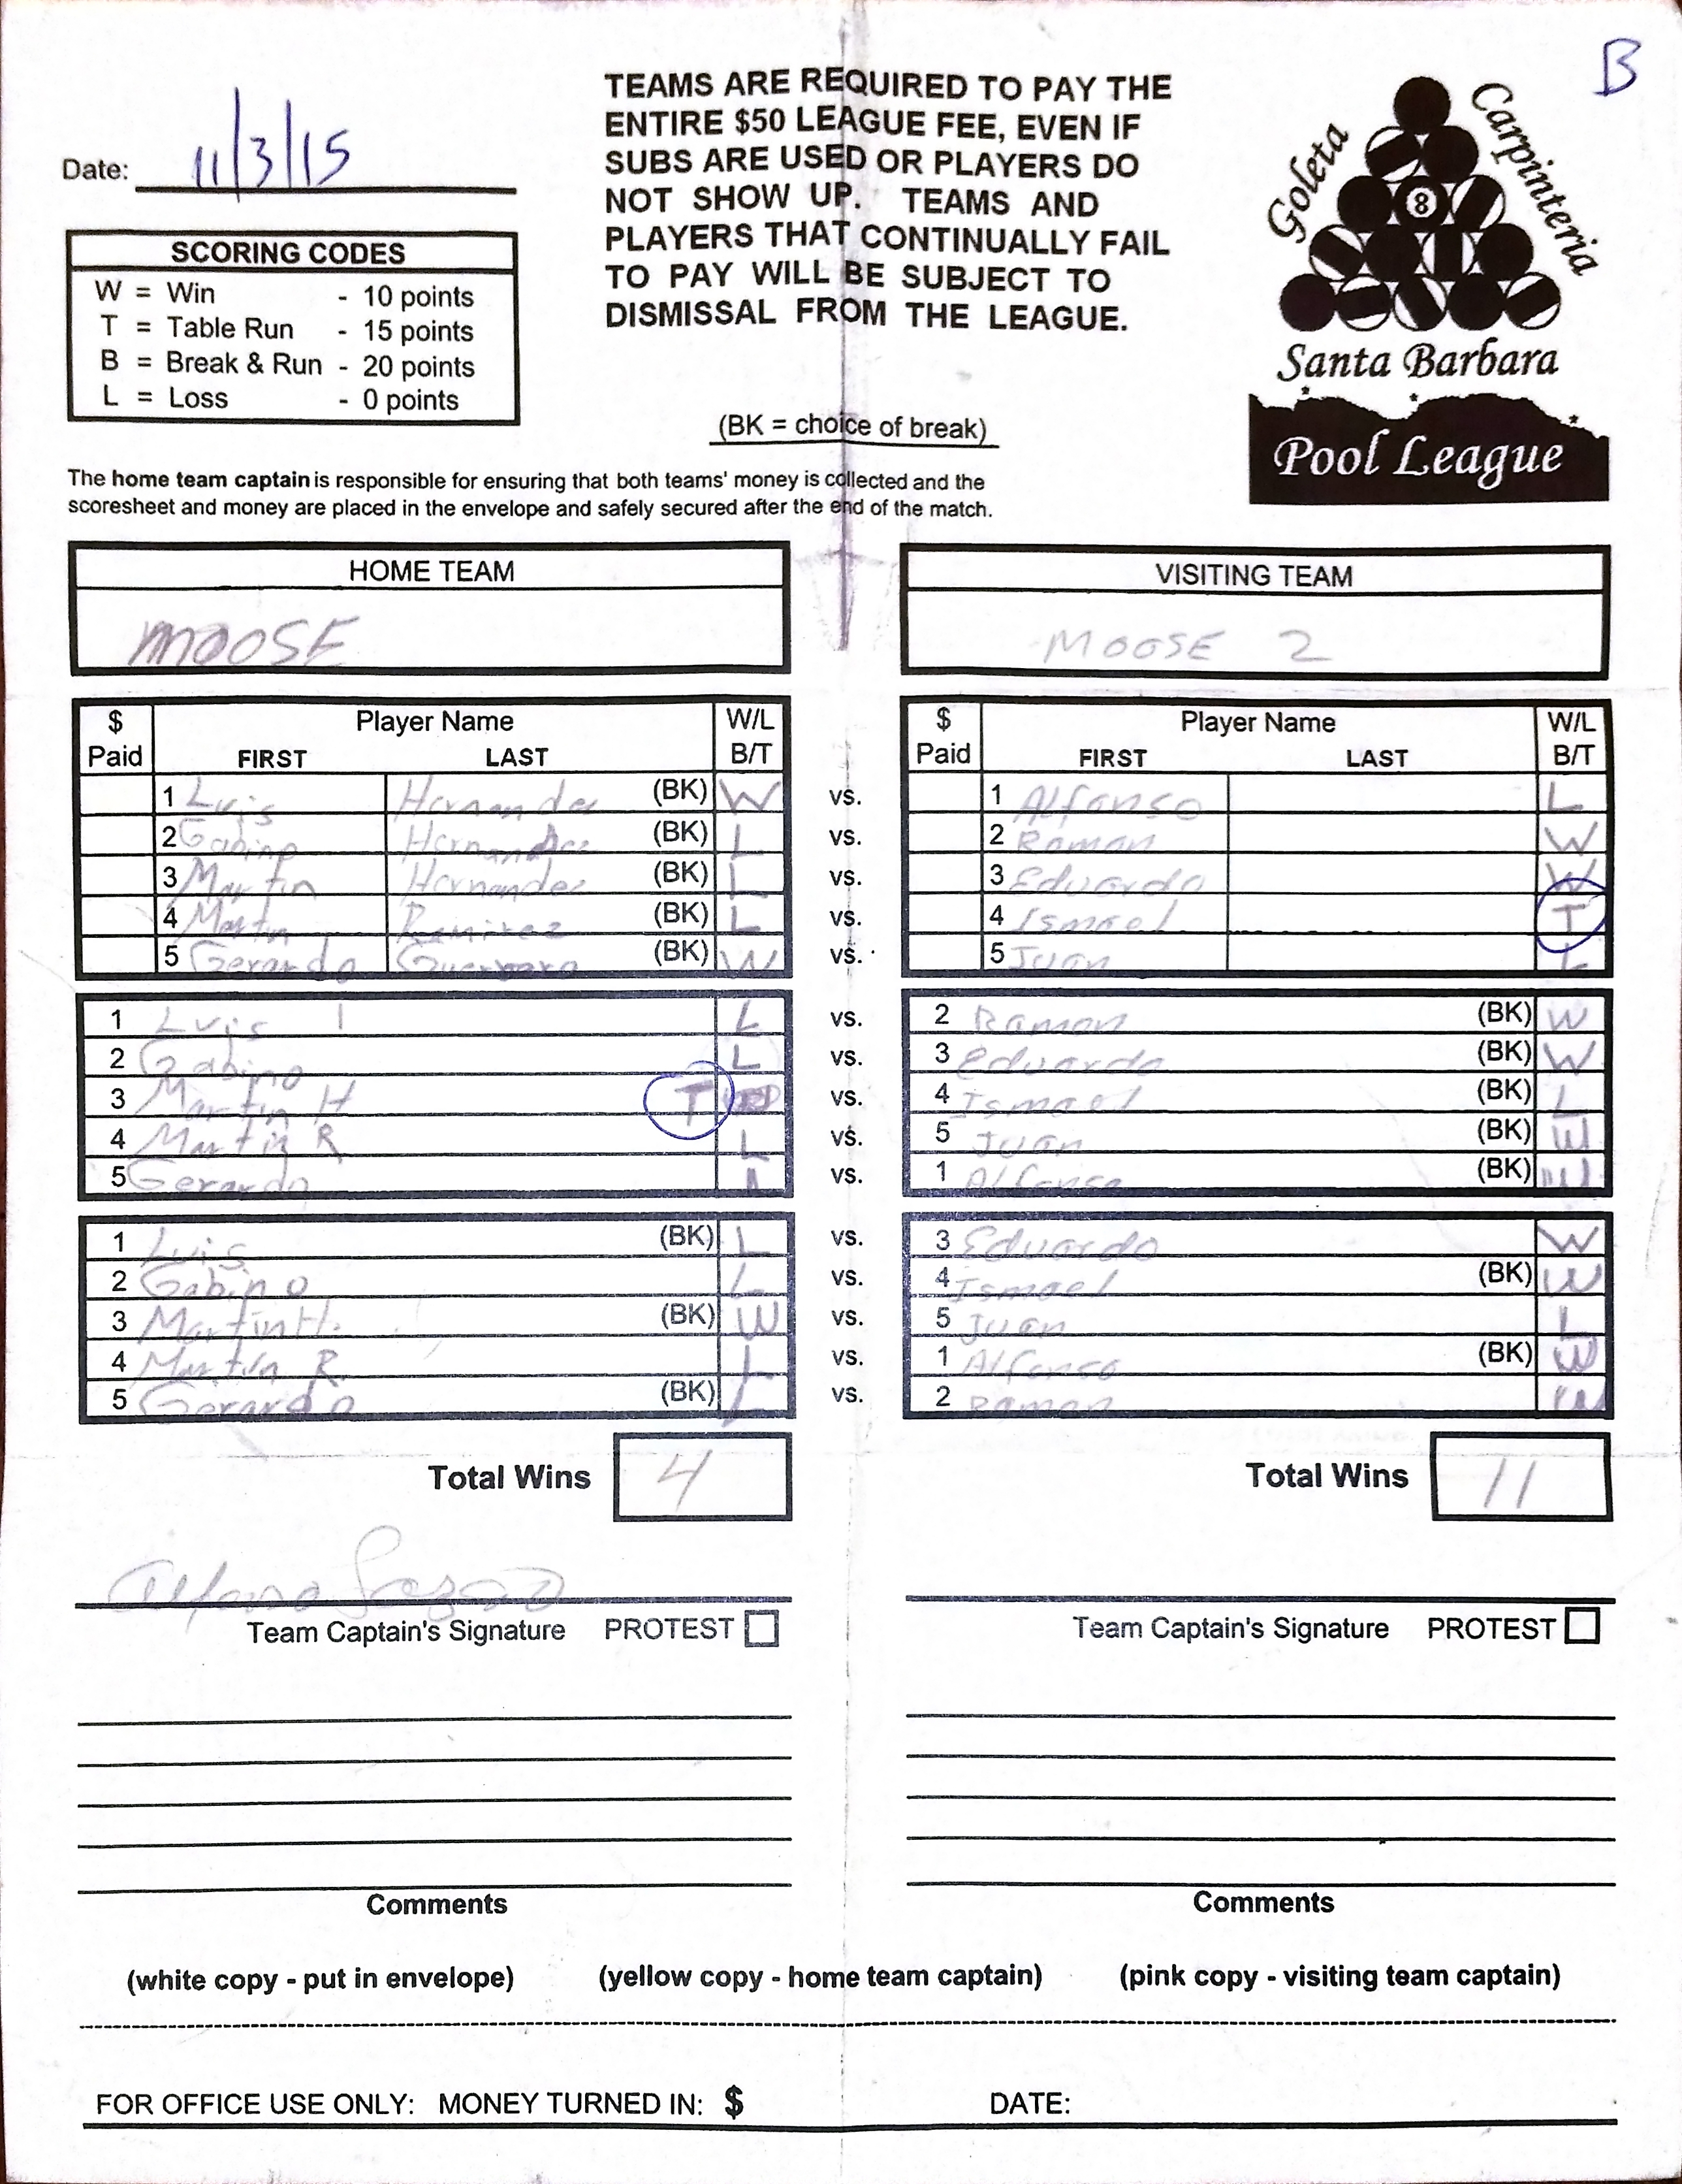 B
Date: 11/3/15
TEAMS ARE REQUIRED TO PAY THE
ENTIRE $50 LEAGUE FEE, EVEN IF
SUBS ARE USED OR PLAYERS DO
NOT SHOW UP. TEAMS AND
PLAYERS THAT CONTINUALLY FAIL
TO PAY WILL BE SUBJECT TO
DISMISSAL FROM THE LEAGUE.
(BK = choice of break)
Goleta
Carpinteria
8
Santa Barbara
Pool League
SCORING CODES
W = Win - 10 points
T = Table Run - 15 points
B = Break & Run - 20 points
L = Loss - 0 points
The home team captain is responsible for ensuring that both teams' money is collected and the
scoresheet and money are placed in the envelope and safely secured after the end of the match.
HOME TEAM VISITING TEAM
MOOSE MOOSE 2
$ Player Name W/L $ Player Name W/L
Paid FIRST LAST B/T Paid FIRST LAST B/T
1 Luis Hernandez (BK) W vs. 1 Alfonso L
2 Gabino Hernandez (BK) L vs. 2 Ramon W
3 Martin Hernandez (BK) L vs. 3 Eduardo W
4 Martin Ramirez (BK) L vs. 4 Ismael T
5 Gerardo Guerrero (BK) W vs. 5 Juan L
1 Luis L vs. 2 Ramon (BK) W
2 Gabino L vs. 3 Eduardo (BK) W
3 Martin H T vs. 4 Ismael (BK) L
4 Martin R L vs. 5 Juan (BK) W
5 Gerardo vs. 1 Alfonso (BK) W
1 Luis (BK) L vs. 3 Eduardo W
2 Gabino L vs. 4 Ismael (BK) W
3 Martin H. (BK) W vs. 5 Juan L
4 Martin R L vs. 1 Alfonso (BK) W
5 Gerardo (BK) L vs. 2 Ramon W
Total Wins 4 Total Wins 11
Team Captain's Signature PROTEST Team Captain's Signature PROTEST
Comments Comments
(white copy - put in envelope) (yellow copy - home team captain) (pink copy - visiting team captain)
FOR OFFICE USE ONLY: MONEY TURNED IN: $ DATE: